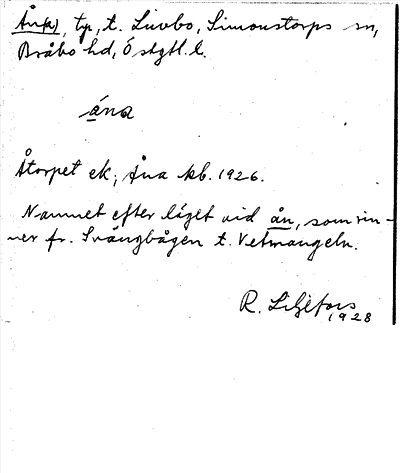 Ån(a), tp, t. Livbo, Simonstorps sn,
Bråbo hd, Östgtl. l.
ána
Åtorpet ek; Åna kb. 1926.
Namnet efter läget vid ån, som rin-
ner fr. Svängbågen t. Vetmangeln.
R. Liljefors
1928